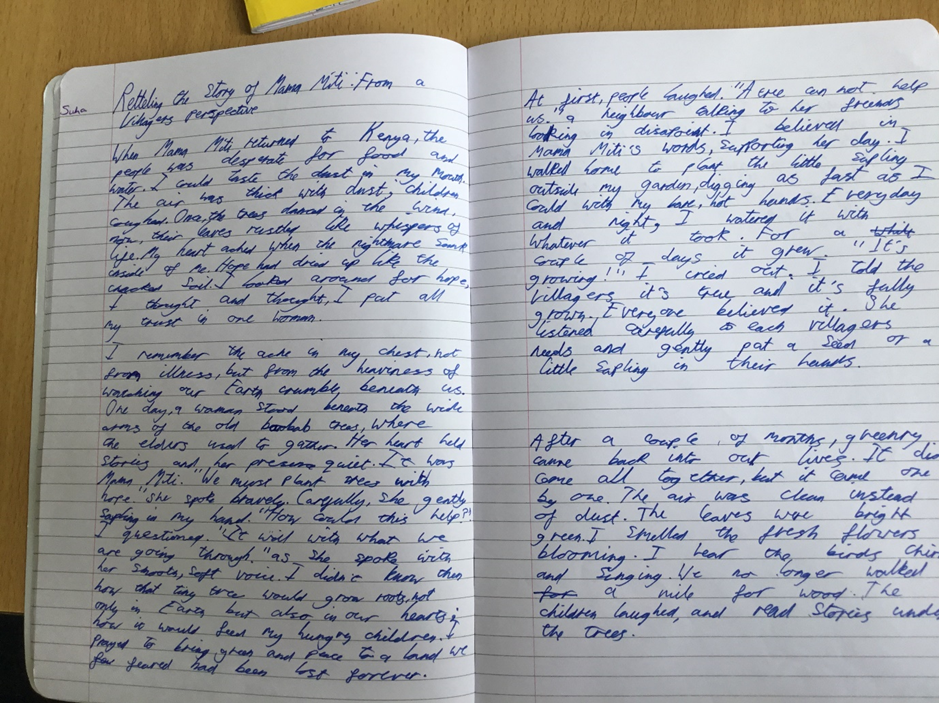 Suha
Retteling the Story of Mama Miti: From a
Villagers perspective
When Mama Miti returned to Kenya, the
people was desperate for food and
water. I could taste the dust in my mouth.
The air was thick with dust, children
coughed. Once, the trees danced in the wind,
now, their leaves rustled like whispers of
life. My heart ached when the nightmare sunk
inside of me. Hope had dried up like the
cracked soil. I looked around for hope,
I thought and thought, I put all
my trust in one woman.
I remember the ache in my chest, not
from illness, but from the heaviness of
watching our Earth crumble beneath us.
One day, a woman stood beneath the wide
arms of the old baobab trees, where
the elders used to gather. Her heart held
stories and her presence quiet. It was
Mama Miti. "We must plant trees with
hope" she spoke bravely. Carefully, she gently
sapling in my hand. "How could this help?"
I questioned. "It will with what we
are going through" as she spoke with
her smooth, soft voice. I didn't know then
how that tiny tree would grow roots, not
only in Earth but also in our hearts,
how it would feed my hungry children. I
prayed to bring green and peace to a land we
feared had been lost forever.
At first, people laughed. "A tree can not help
us." a neighbour talking to her friends
looking in I believed in
Mama Miti's words, supporting her day. I
walked home to plant the little sapling
outside my garden, digging as fast as I
could with my bare, hot hands. Everyday
and night, I watered it with
whatever it took. For a
couple of days it grew. "It's
growing!!" I cried out. I told the
villagers it's true and it's fully
grown. Everyone believed it. She
listened carefully to each villagers
needs and gently put a seed or a
little sapling in their hands.
After a couple of months, greenry
came back into our lives. It did
come all together, but it came one
by one. The air was clean instead
of dust. The leaves were bright
green. I smelled the fresh flowers
blooming. I hear the birds chir
and singing. We no longer walked
a mile for wood. The
children laughed, and read stories unde
the trees.